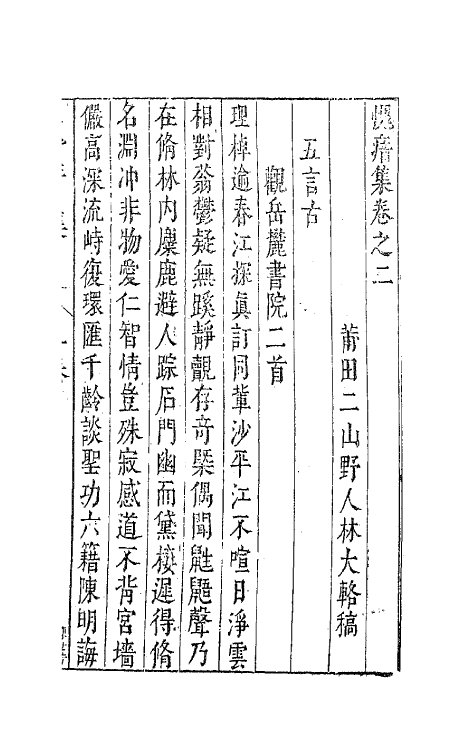 愧瘖集卷之二
莆田二山野人林大輅稿
五言古
觀岳麓書院二首
理棹逾春江探眞訂同輩沙平江不喧日淨雲
相對蓊鬱疑無蹊靜觀存奇槩偶聞鼪鼯聲乃
在脩林內麋鹿避人踪石門幽而黛棲遲得脩
名淵冲非物愛仁智情豈殊寂感道不背宮墻
儼高深流峙復環匯千齡談聖功六籍陳明誨